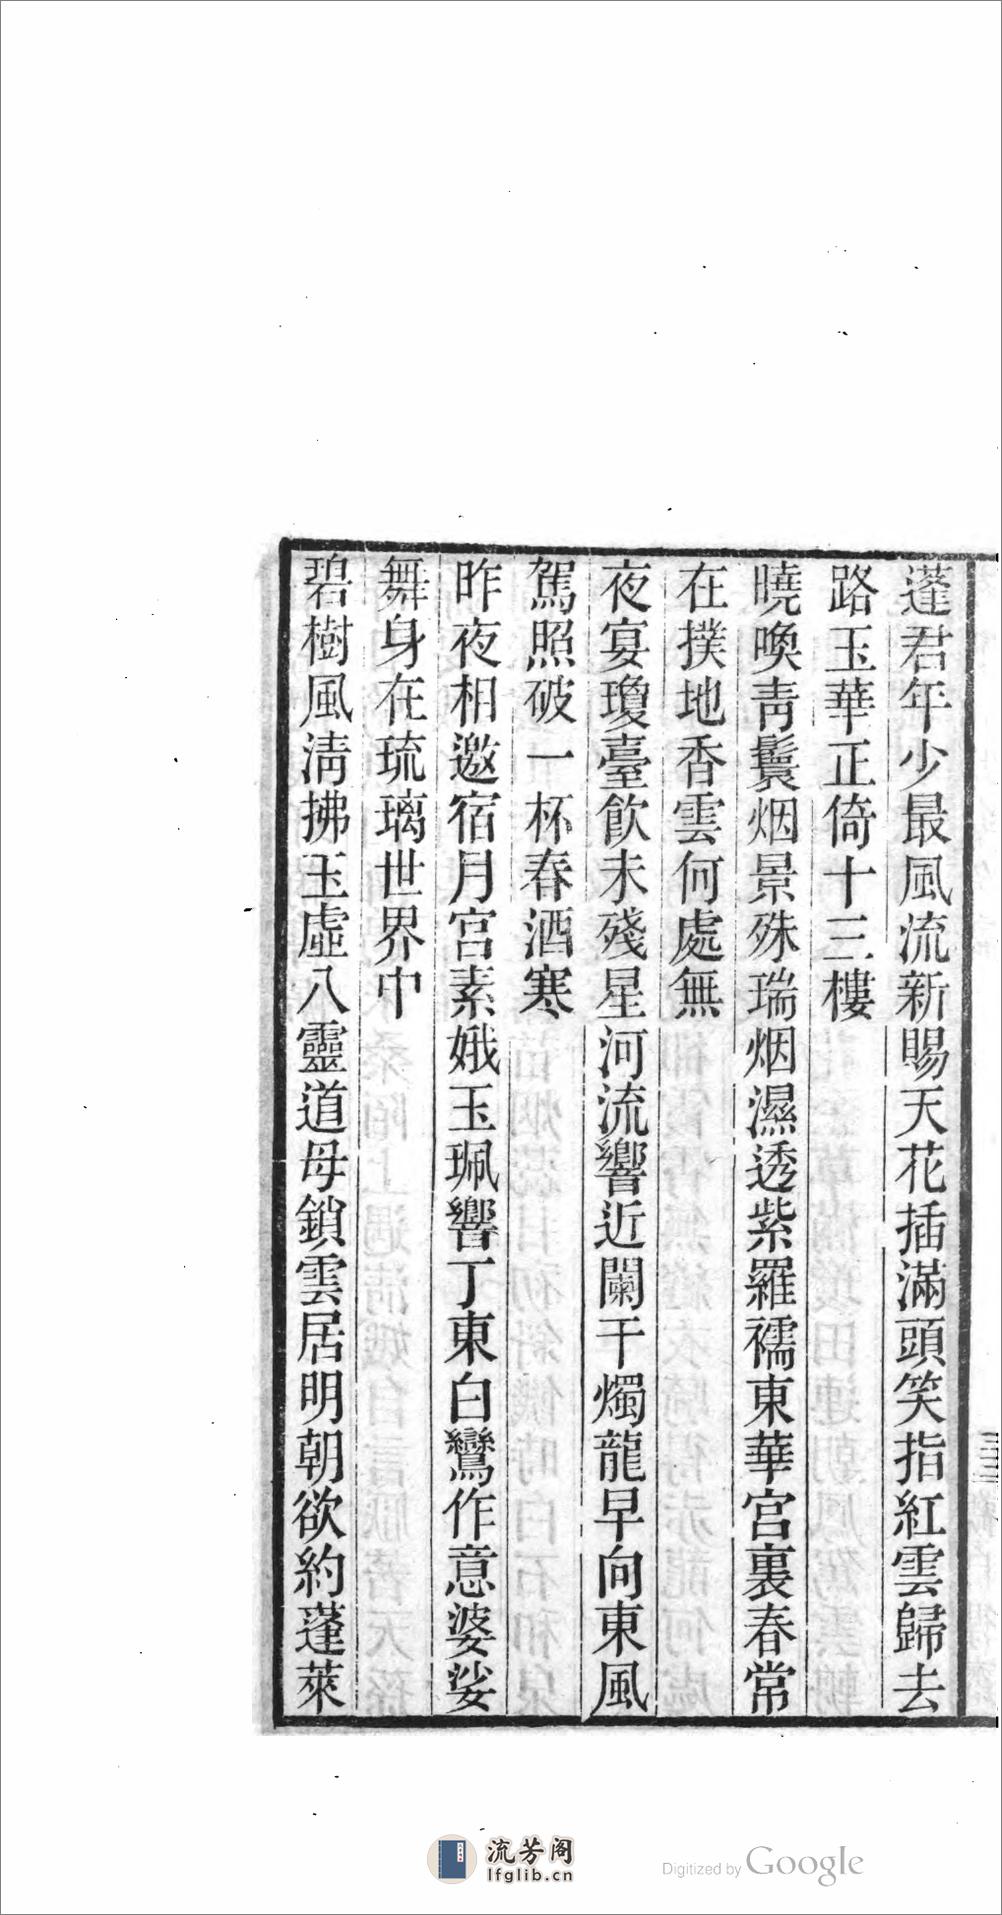 蓬君年少最風流新賜天花插滿頭笑指紅雲歸去
路玉華正倚十三樓
曉喚靑鬟烟景殊瑞烟濕透紫羅襦東華宮裏春常
在撲地香雲何處無
夜宴瓊臺飮未殘星河流響近闌干燭龍早向東風
駕照破一杯春酒寒
昨夜相邀宿月宮素娥玉珮響丁東白鸞作意婆娑
舞身在琉璃世界中
碧樹風淸拂玉虛八靈道母鎖雲居明朝欲約蓬萊
流芳阁
lfglib.cn
Digitized by Google